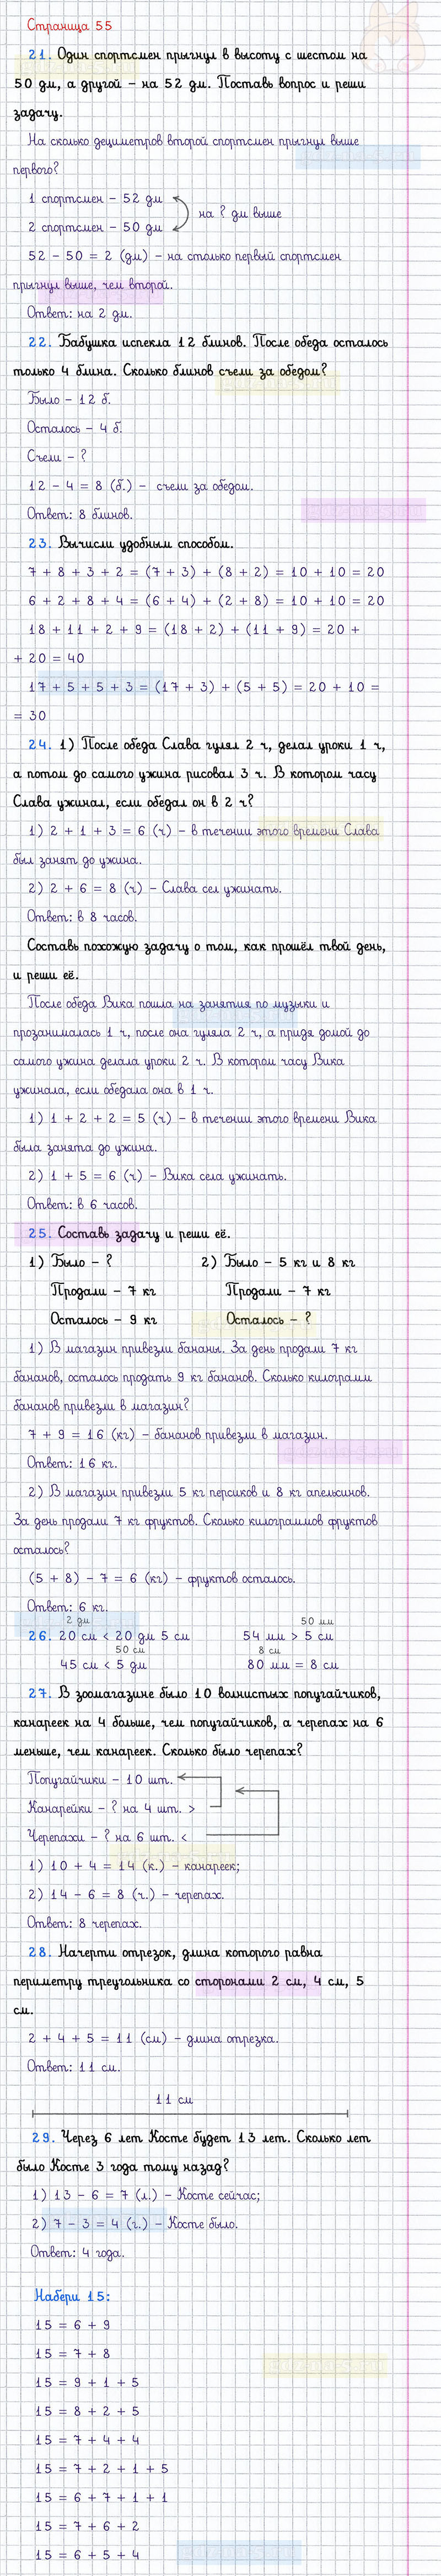 Страница 55
21. Один спортсмен прыгнул в высоту с шестом на
50 дм, а другой – на 52 дм. Поставь вопрос и реши
задачу.
На сколько дециметров второй спортсмен прыгнул выше
первого?
1 спортсмен – 52 дм
на ? дм выше
2 спортсмен – 50 дм
52 – 50 = 2 (дм) – на столько первый спортсмен
прыгнул выше, чем второй.
Ответ: на 2 дм.
22. Бабушка испекла 12 блинов. После обеда осталось
только 4 блина. Сколько блинов съели за обедом?
Было – 12 б.
Осталось – 4 б.
Съели – ?
12 – 4 = 8 (б.) – съели за обедом.
Ответ: 8 блинов.
23. Вычисли удобным способом.
7 + 8 + 3 + 2 = (7 + 3) + (8 + 2) = 10 + 10 = 20
6 + 2 + 8 + 4 = (6 + 4) + (2 + 8) = 10 + 10 = 20
18 + 11 + 2 + 9 = (18 + 2) + (11 + 9) = 20 +
+ 20 = 40
17 + 5 + 5 + 3 = (17 + 3) + (5 + 5) = 20 + 10 =
= 30
24. 1) После обеда Слава гулял 2 ч, делал уроки 1 ч,
а потом до самого ужина рисовал 3 ч. В котором часу
Слава ужинал, если обедал он в 2 ч?
1) 2 + 1 + 3 = 6 (ч) – в течении этого времени Слава
был занят до ужина.
2) 2 + 6 = 8 (ч) – Слава сел ужинать.
Ответ: в 8 часов.
Составь похожую задачу о том, как прошёл твой день,
и реши её.
После обеда Вика пошла на занятия по музыки и
прозанималась 1 ч, после она гуляла 2 ч, а придя домой до
самого ужина делала уроки 2 ч. В котором часу Вика
ужинала, если обедала она в 1 ч.
1) 1 + 2 + 2 = 5 (ч) – в течении этого времени Вика
была занята до ужина.
2) 1 + 5 = 6 (ч) – Вика села ужинать.
Ответ: в 6 часов.
25. Составь задачу и реши её.
1) Было – ? 2) Было – 5 кг и 8 кг
Продали – 7 кг Продали – 7 кг
Осталось – 9 кг Осталось – ?
1) В магазин привезли бананы. За день продали 7 кг
бананов, осталось продать 9 кг бананов. Сколько килограмм
бананов привезли в магазин?
7 + 9 = 16 (кг) – бананов привезли в магазин.
Ответ: 16 кг.
2) В магазин привезли 5 кг персиков и 8 кг апельсинов.
За день продали 7 кг фруктов. Сколько килограммов фруктов
осталось?
(5 + 8) – 7 = 6 (кг) – фруктов осталось.
Ответ: 6 кг.
2 дм 50 мм
26. 20 см < 20 дм 5 см 54 мм > 5 см
50 см 8 см
45 см < 5 дм 80 мм = 8 см
27. В зоомагазине было 10 волнистых попугайчиков,
канареек на 4 больше, чем попугайчиков, а черепах на 6
меньше, чем канареек. Сколько было черепах?
Попугайчики – 10 шт.
Канарейки – ? на 4 шт. >
Черепахи – ? на 6 шт. <
1) 10 + 4 = 14 (к.) – канареек;
2) 14 – 6 = 8 (ч.) – черепах.
Ответ: 8 черепах.
28. Начерти отрезок, длина которого равна
периметру треугольника со сторонами 2 см, 4 см, 5
см.
2 + 4 + 5 = 11 (см) – длина отрезка.
Ответ: 11 см.
11 см
29. Через 6 лет Косте будет 13 лет. Сколько лет
было Косте 3 года тому назад?
1) 13 – 6 = 7 (л.) – Косте сейчас;
2) 7 – 3 = 4 (г.) – Косте было.
Ответ: 4 года.
Набери 15:
15 = 6 + 9
15 = 7 + 8
15 = 9 + 1 + 5
15 = 8 + 2 + 5
15 = 7 + 4 + 4
15 = 7 + 2 + 1 + 5
15 = 6 + 7 + 1 + 1
15 = 7 + 6 + 2
15 = 6 + 5 + 4